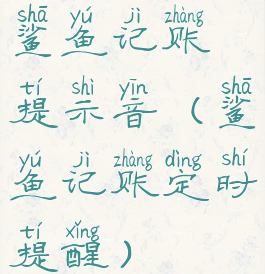 shā yú jì zhàng
鲨鱼记账
tí shì yīn shā
提示音（鲨
yú jì zhàng dìng shí
鱼记账定时
tí xǐng
提醒）